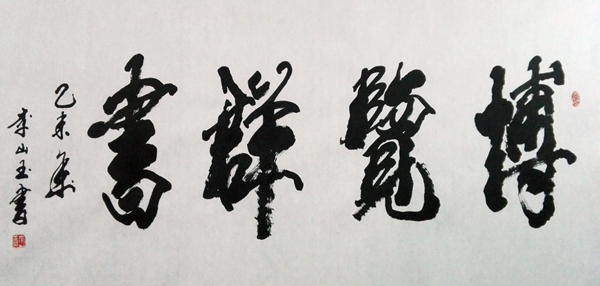 博覽群書
乙未夏
李山玉書